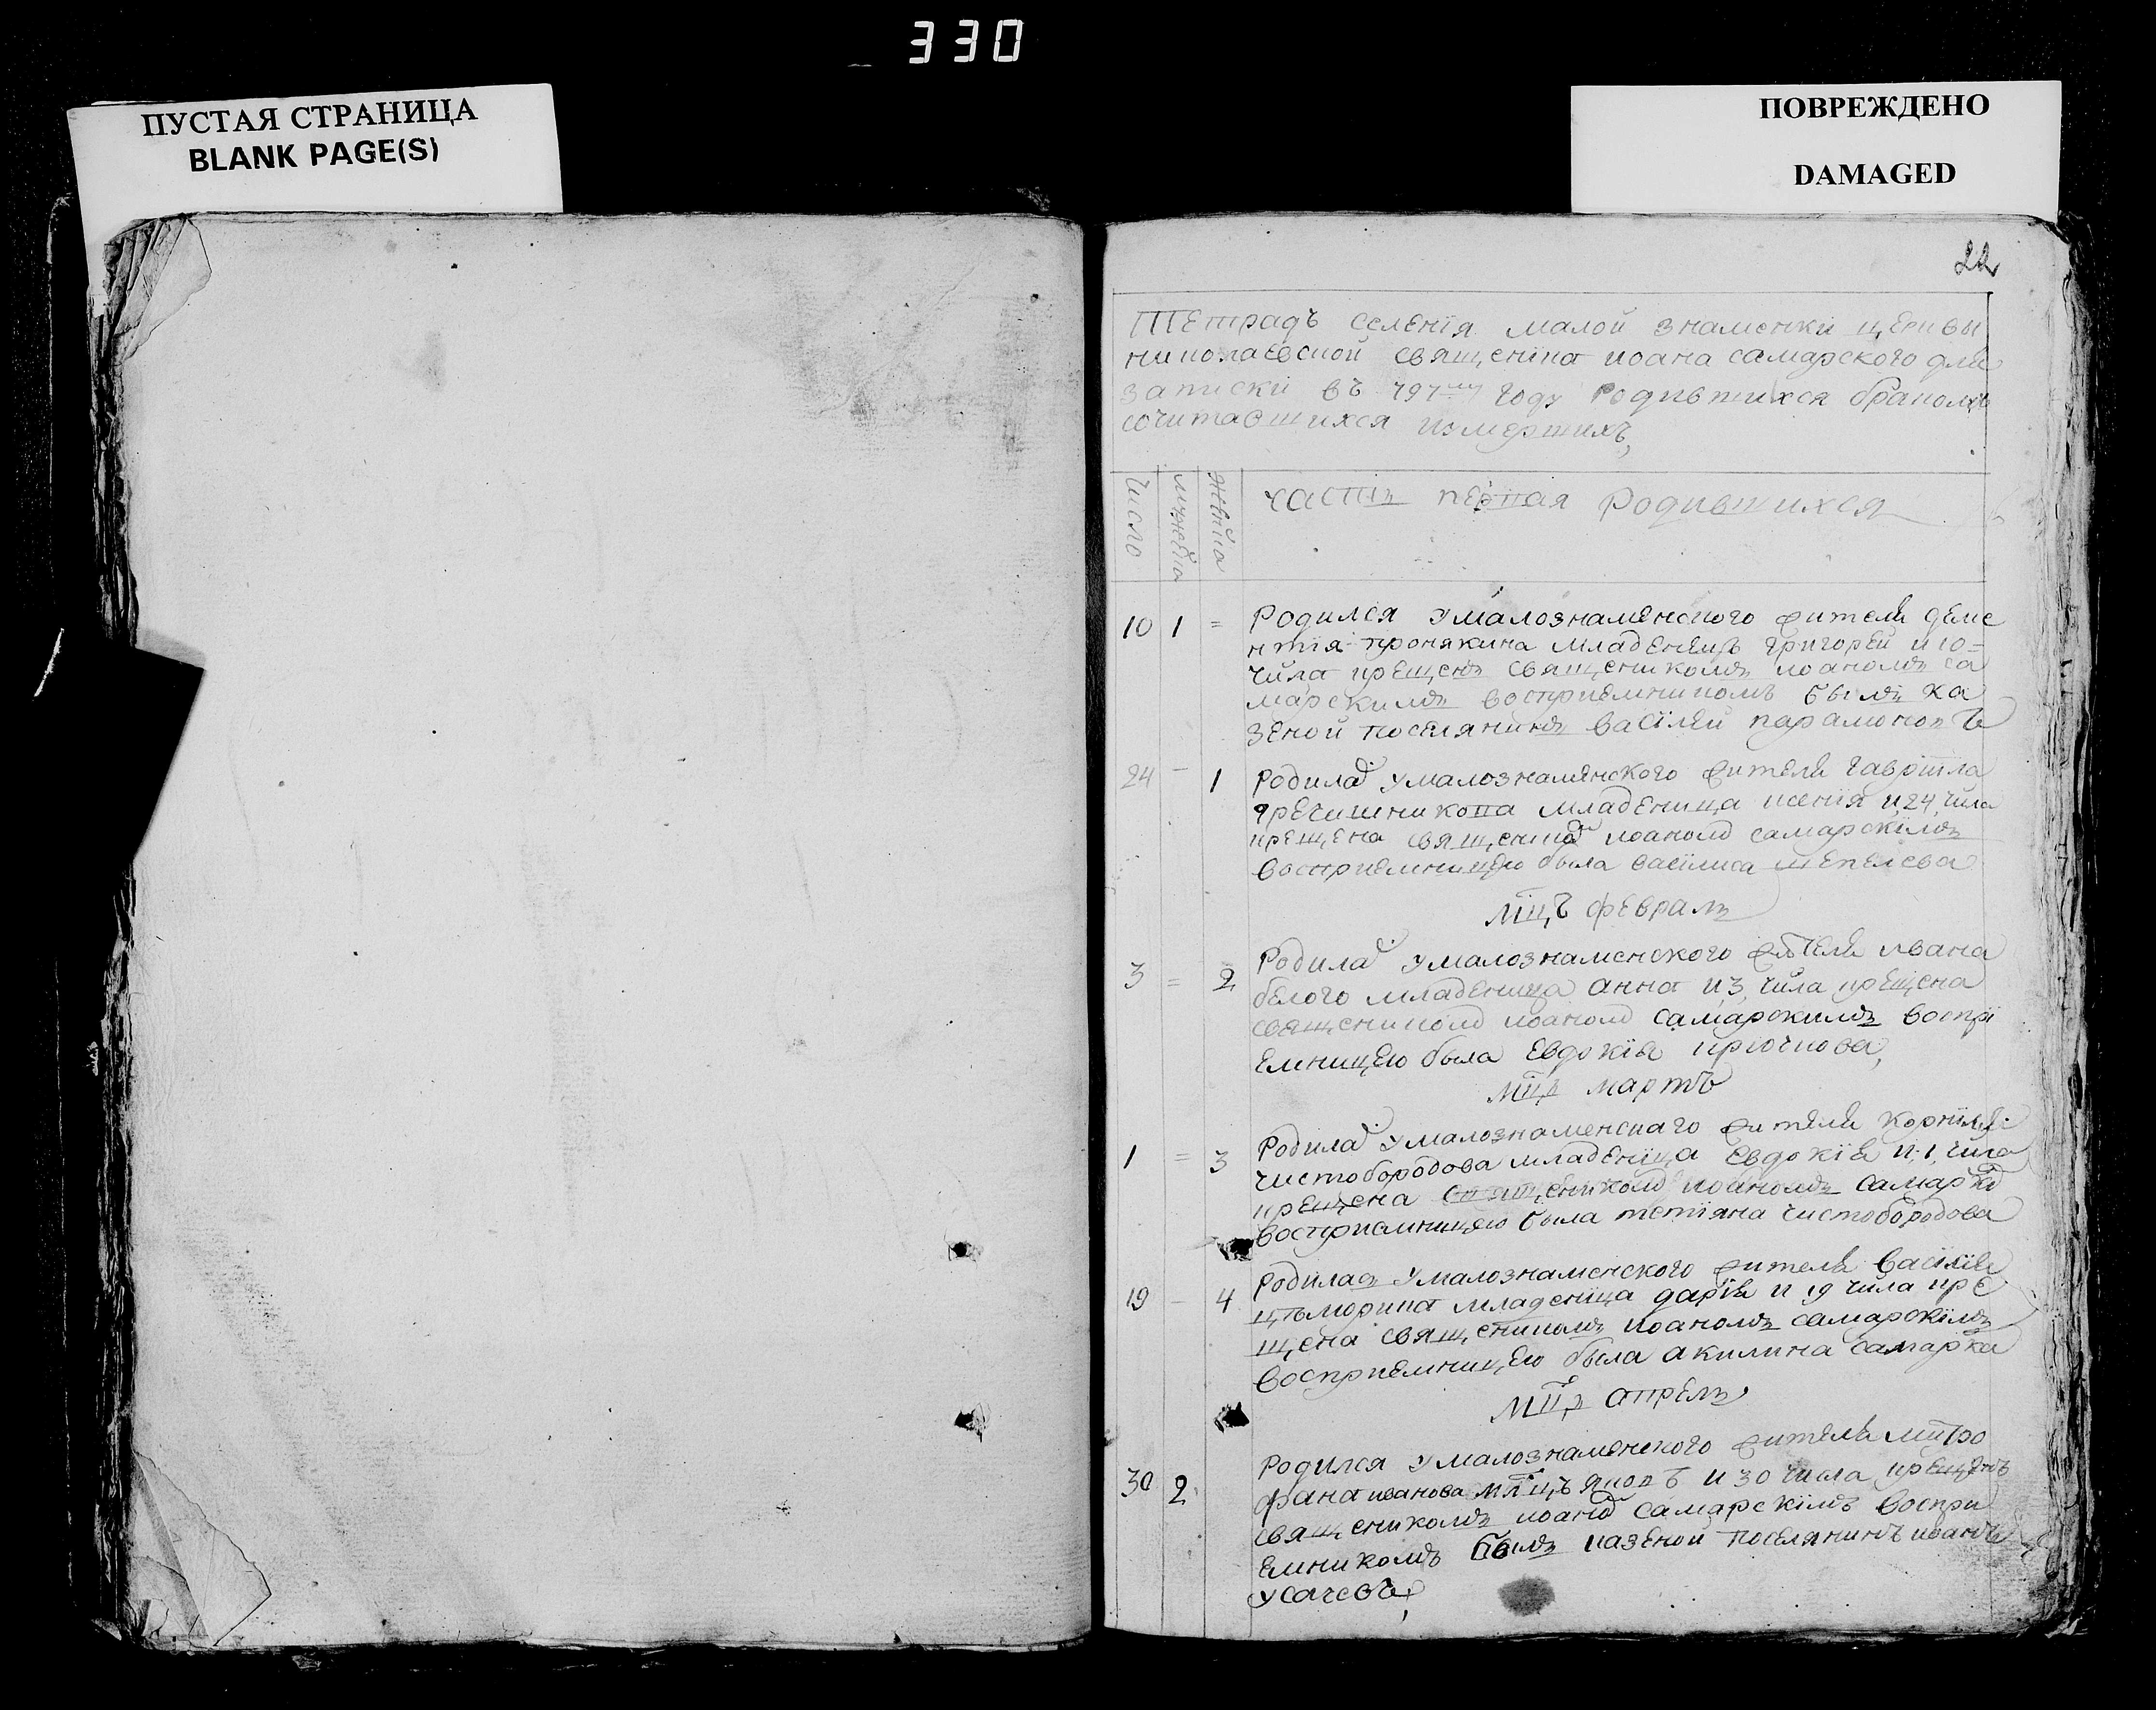 330
ПУСТАЯ СТРАНИЦА
BLANK PAGE(S)
ПОВРЕЖДЕНО
DAMAGED
22
Тетрадъ селенїя малой знаменки церквы
николаевской священика иоана самарского для
записки въ 797му году родившихся браком
сочитавшихся измершихъ,
число
мужеска
женска
часть первая родившихся
10 1 = Родился умалознаменского жителя деме
нтїя пронякина младенецъ григорей и 10=
числа крещенъ священикомъ иоаномъ са
марскимъ восприемникомъ былъ ка
зеной поселянинъ василей парамоновъ
24 - 1 родилас умалознамянского жителя гаврила
гречишникова младеница ксенїя и 24, числа
крещена священиком иоаном самарскїмъ
восприемницею была василиса шепелева
мцъ февраль
3 = 2 Родилас умалознаменского жителя ивана
белого младеница анна и 3, числа крещена
священиком иоаном самарскимъ воспри
емницею была евдокїя крючкова,
мцъ мартъ
1 = 3 Родилас умалознаменскаго жителя корнилїя
чистобородова младеница евдокїя и 1, числа
крещена священиком иоаномъ самарски
восприемницею была тетїяна чистобородова
19 - 4 родилась умалознаменского жителя василїя
младеница дарїя и 19 числа кре
щена священикомъ иоаномъ самарскїмъ
восприемницею была акилина самарска
мцъ апрель
30 2 Родился умалознаменского жителя митро
фана иванова млнцъ яковъ и 30 числа крещенъ
священикомъ иоаном самарскїмъ воспри
емникомъ былъ казеной поселянинъ иванъ
усачевъ,